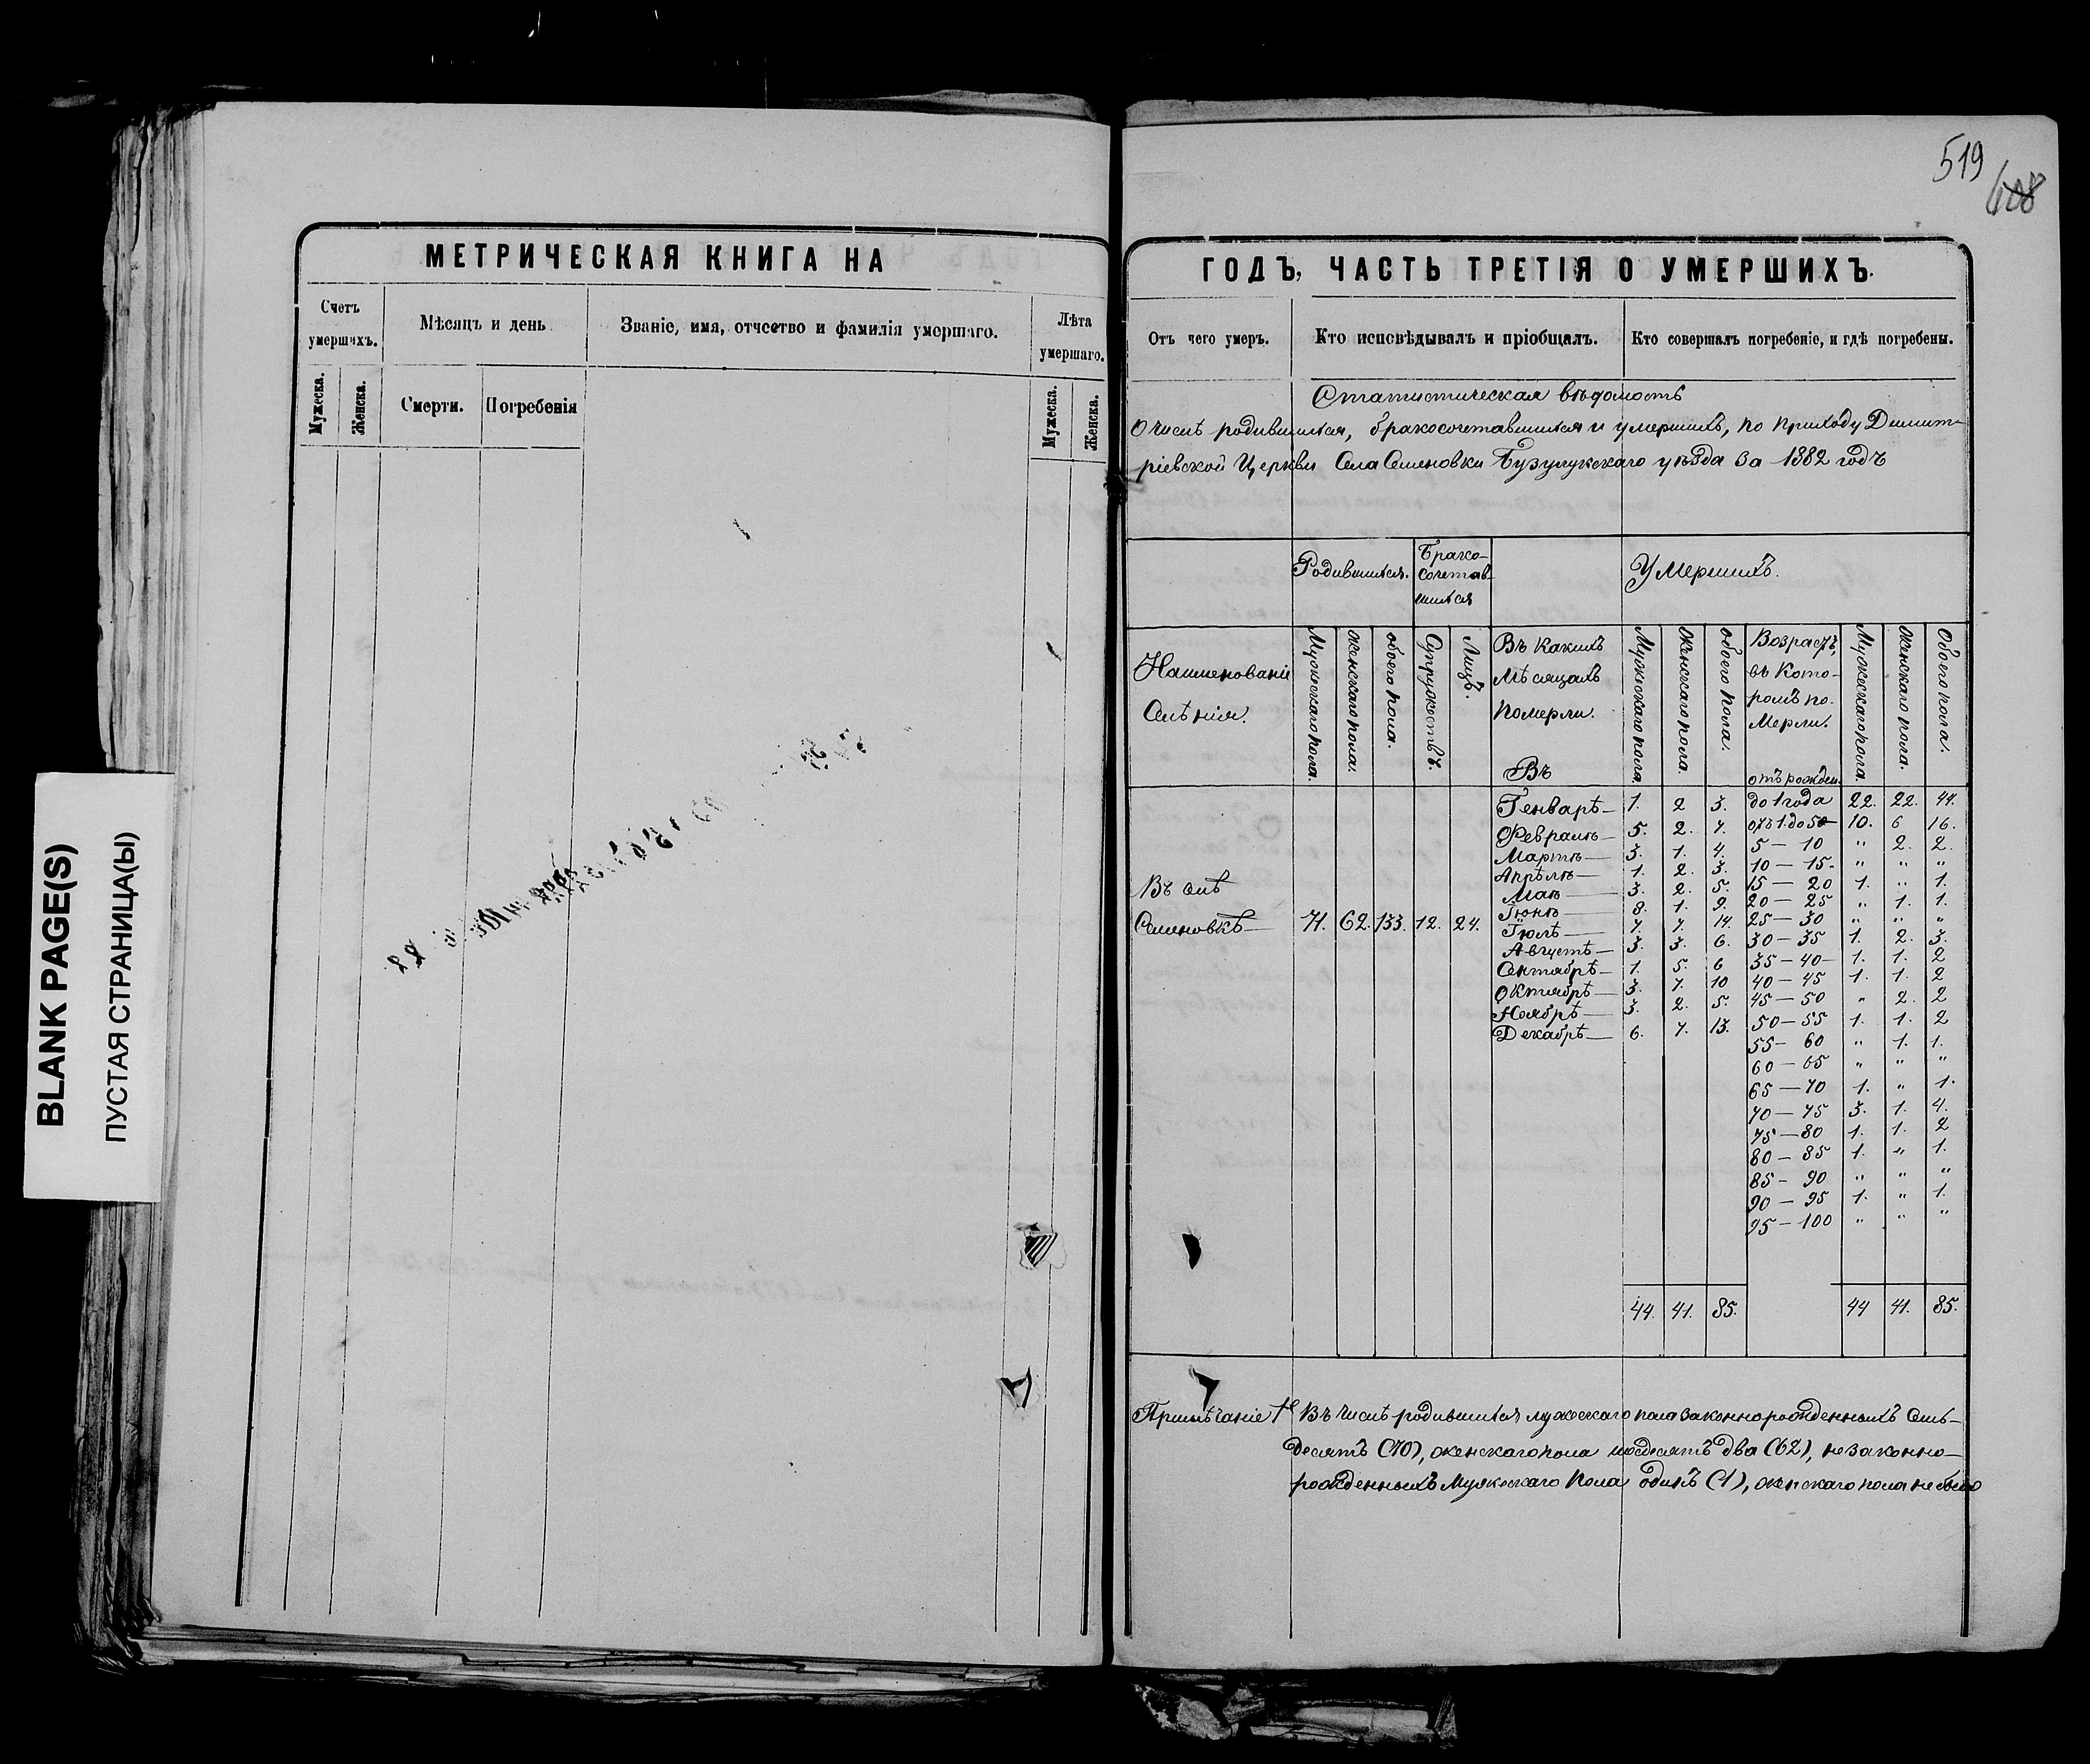 519
608
МЕТРИЧЕСКАЯ КНИГА НА
ГОДЪ, ЧАСТЬ ТРЕТІЯ О УМЕРШИХЪ.
Счетъ умершихъ.
Мѣсяцъ и день
Званіе, имя, отчество и фамилія умершаго.
Лѣта умершаго.
Мужеска.
Женска.
Смерти.
Погребенія
Мужеска.
Женска.
Отъ чего умеръ.
Кто исповѣдывалъ и пріобщалъ.
Кто совершалъ погребеніе, и гдѣ погребены.
Статистическая вѣдомость
О числѣ родившихся, бракосочетавшихся и умершихъ, по приходу Димит-
ріевской Церкви Села Семеновки Бузулукскаго уѣзда за 1882 годъ
Родившихся.
Брако-
сочетав-
шихся
Умершихъ.
Наименованіе
Селенія.
Мужескаго пола.
женскаго пола.
обоего пола.
Супружествъ.
Лицъ.
Въ какихъ
Мѣсяцахъ
померли.
Въ
Мужескаго пола
женскаго пола.
обоего пола.
Возрастъ,
въ кото-
ромъ по-
мерли.
отъ рожден.
Мужескаго пола.
женскаго пола.
Обоего пола.
Генварѣ— 1. 2 3. до 1 года 22. 22. 44.
Февралѣ— 5. 2. 7. отъ 1. до 5 10. 6 16.
Мартѣ— 3. 1. 4. 5 — 10 " 2. 2.
Апрѣлѣ— 1. 2. 3. 10 — 15. " " "
Маѣ— 3. 2. 5. 15 — 20 1. " 1.
Іюнѣ— 8. 1. 9. 20 — 25 " 1. 1.
Въ селѣ
Семеновкѣ— 71. 62. 133. 12. 24.
Іюлѣ— 7. 7. 14. 25 — 30 " " "
Августѣ— 3. 3. 6. 30 — 35 1. 2. 3.
Сентябрѣ— 1. 5. 6 35 — 40 1. 1. 2
Октябрѣ— 3. 7. 10 40 — 45 1. 1. 2
Ноябрѣ— 3. 2. 5. 45 — 50 " 2. 2
Декабрѣ— 6. 7. 13. 50 — 55 1. 1. 2
55 — 60 " 1. 1.
60 — 65 " " "
65 — 70 1. " 1.
70 — 75 3. 1. 4.
75 — 80 1. 1. 2
80 — 85 1. " 1.
85 — 90 " " "
90 — 95 1. " 1.
95 — 100 " " "
44. 41. 85. 44 41. 85.
Примѣчаніе 1е Въ числѣ родившихся мужескаго пола законнорожденныхъ семь-
десятъ (70), женскаго пола шесдесятъ два (62), незаконно-
рожденныхъ мужескаго пола одинъ (1), женскаго пола не было
BLANK PAGE(S)
ПУСТАЯ СТРАНИЦА(Ы)